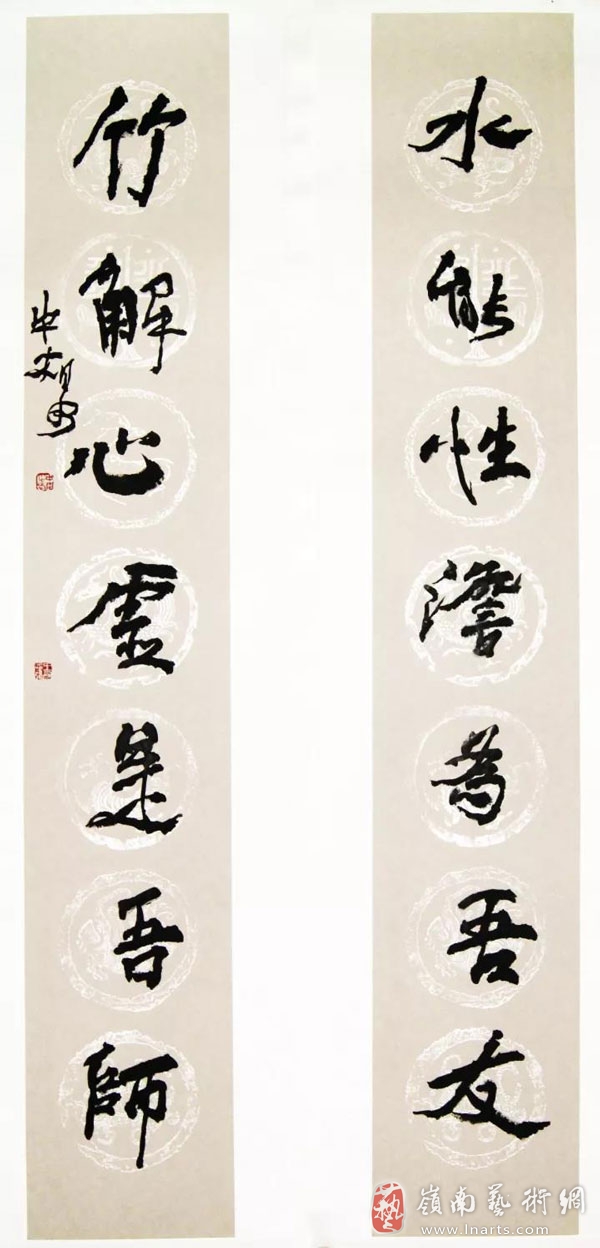 水能性澹為吾友
竹解心虛是吾師
嶺南藝術網
www.lnarts.com